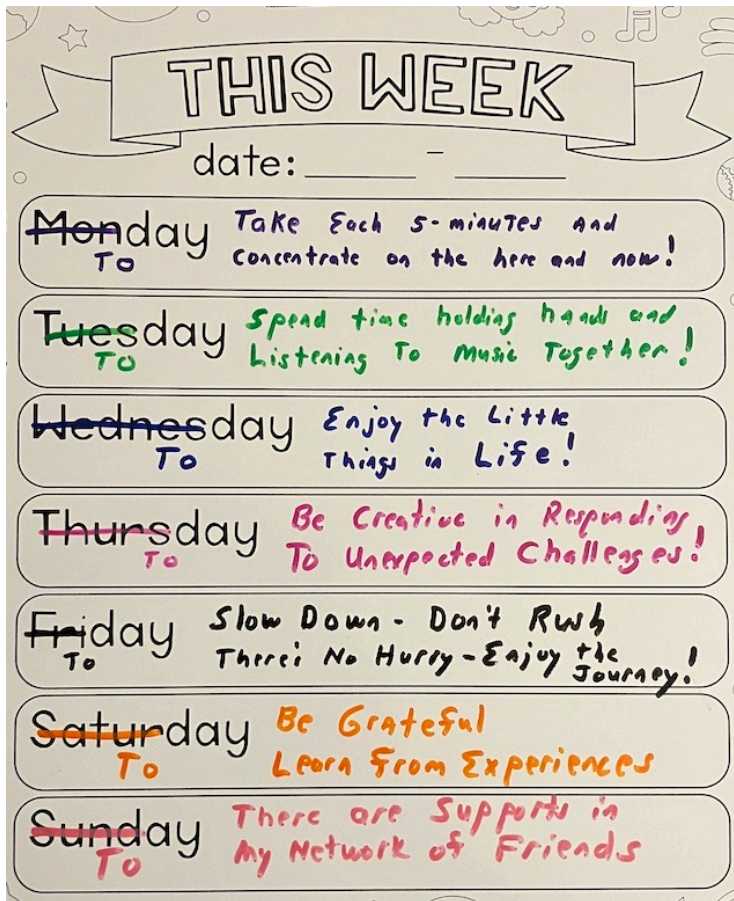 THIS WEEK
date: ________ - ________
Monday Take Each 5-minutes And
To Concentrate on the here and now!
Tuesday Spend time holding hands and
To Listening To Music Together!
Wednesday Enjoy the Little
To Things in Life!
Thursday Be Creative in Responding
To To Unexpected Challenges!
Friday Slow Down - Don't Rush
To There's No Hurry - Enjoy the
Journey!
Saturday Be Grateful
To Learn From Experiences
Sunday There are Supports in
To My Network of Friends